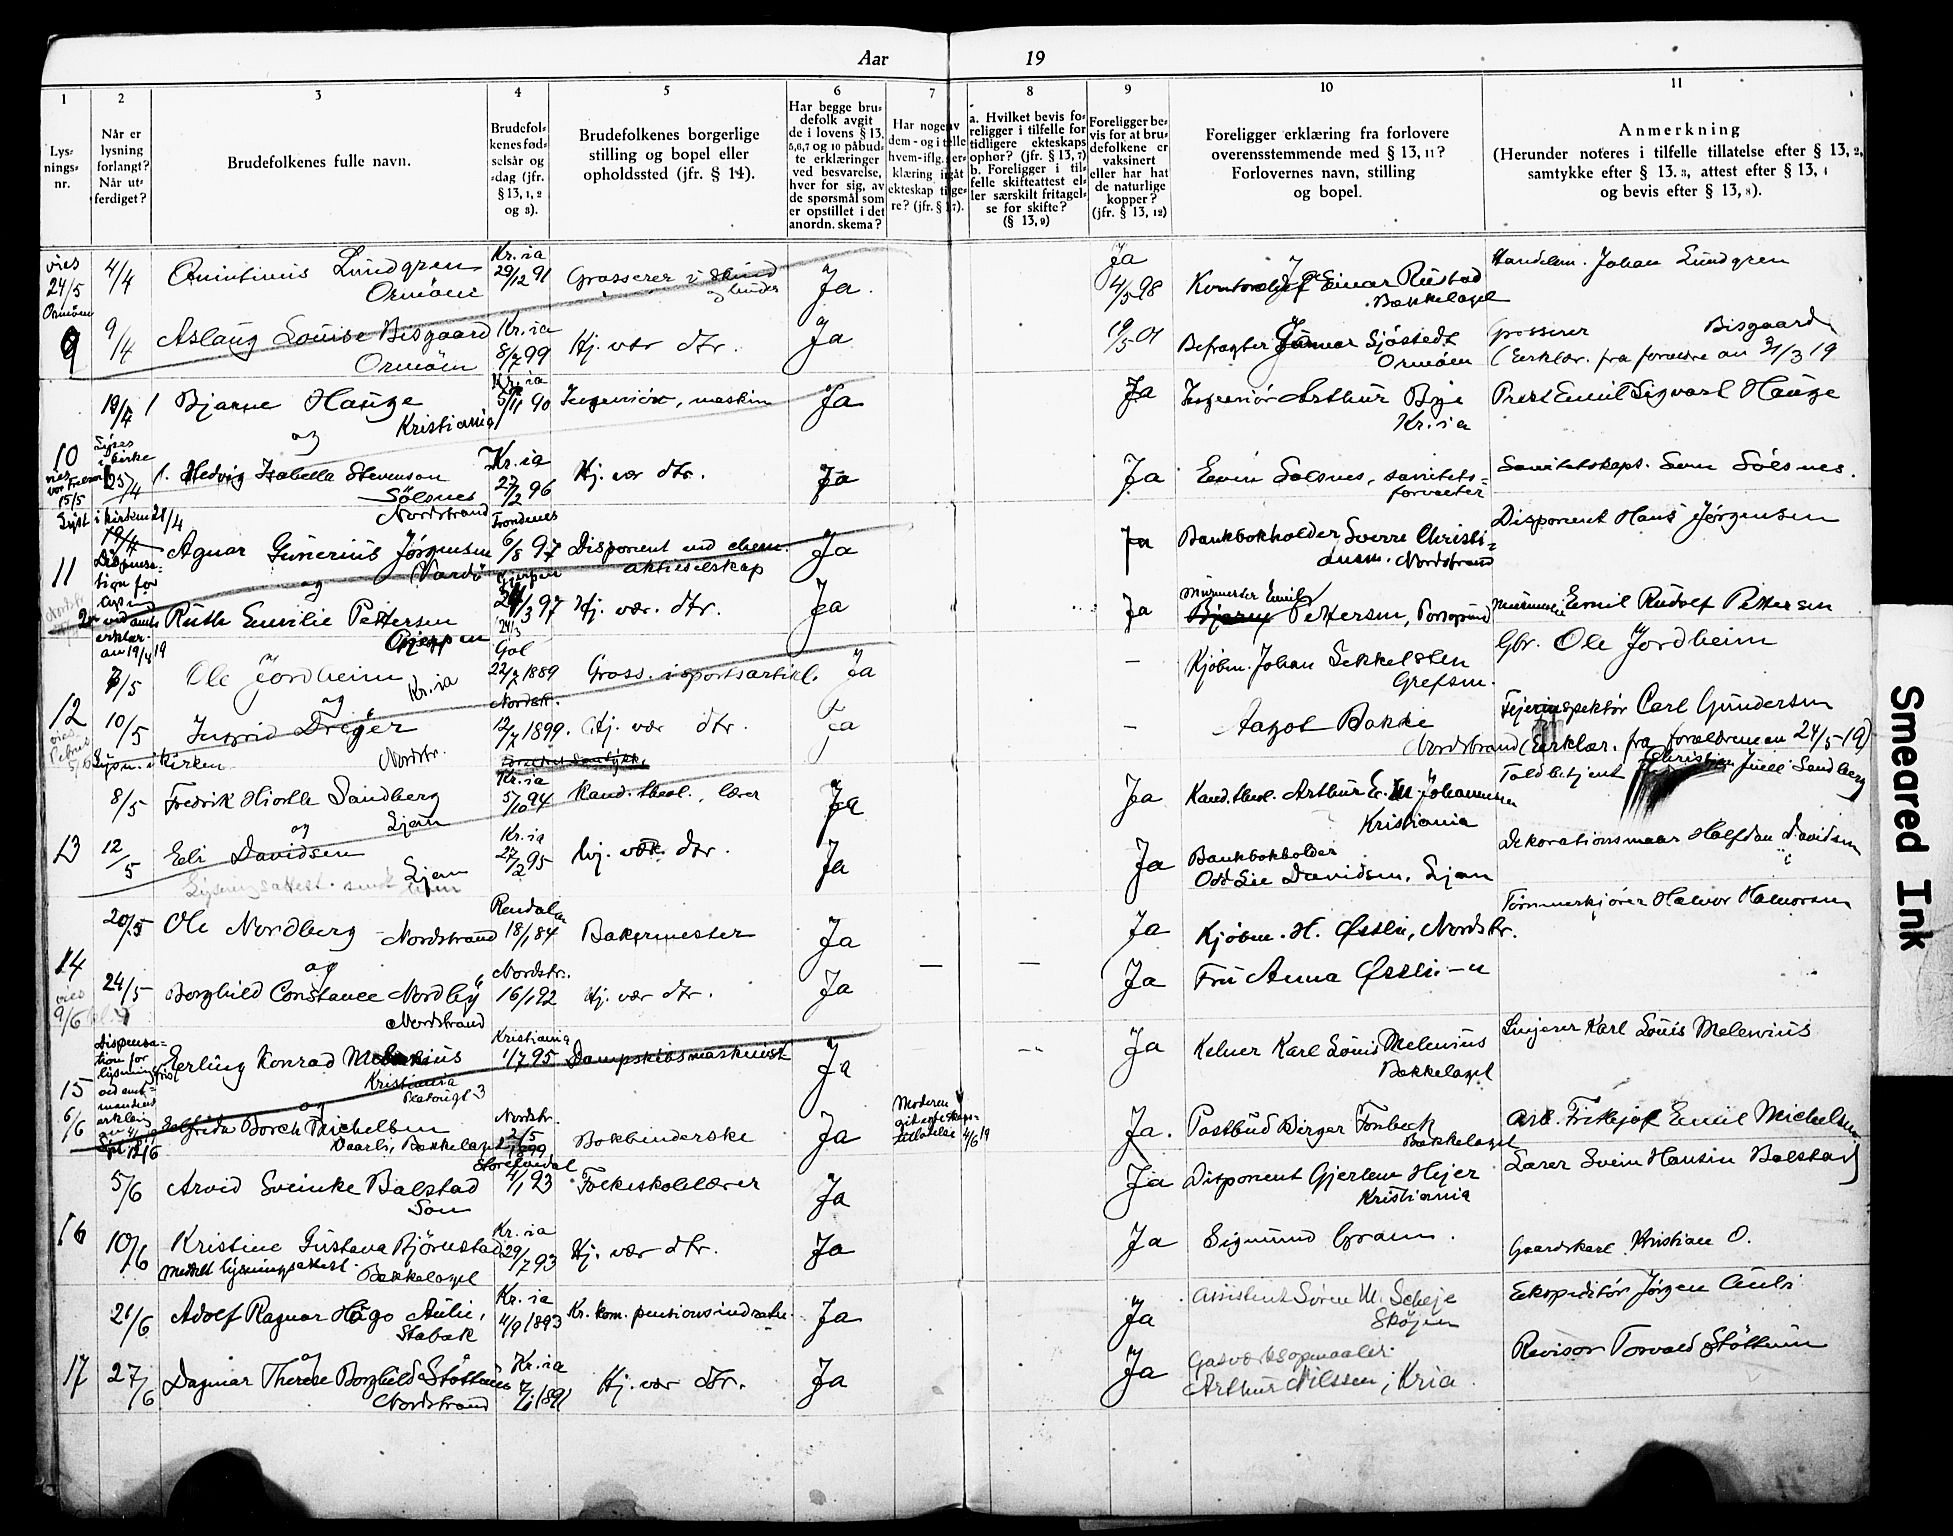 Aar 19
1 2 3 4 5 6 7 8 9 10 11
Lys-
nings-
nr.
Når er
lysning
forlangt?
Når ut-
ferdiget?
Brudefolkenes fulle navn.
Brudefol-
kenes fød-
selsår og
-dag (jfr.
§ 13, 1, 2
og 3).
Brudefolkenes borgerlige
stilling og bopel eller
opholdssted (jfr. § 14).
Har begge bru-
defolk avgit
de i lovens § 13,
5,6,7 og 10 påbud-
te erklæringer
ved besvarelse,
hver for sig, av
de spørsmål som
er opstillet i det
anordn. skema?
Har nogen av
dem - og i tilfelle
hvem - iflg. er-
klæring ingåt
ekteskap tidlige-
re? (jfr. § 17).
a. Hvilket bevis fo-
religger i tilfelle for
tidligere ekteskaps
ophør? (jfr. § 13, 7)
b. Foreligger i til-
felle skifteattest el-
ler særskilt fritagel-
se for skifte?
(§ 13, 9)
Foreligger be-
vis for at bru-
defolkene er
vaksinert
eller har hat
de naturlige
kopper?
(jfr. § 13, 12)
Foreligger erklæring fra forlovere
overensstemmende med § 13, 11?
Forlovernes navn, stilling
og bopel.
Anmerkning
(Herunder noteres i tilfelle tillatelse efter § 13, 2,
samtykke efter § 13. 3, attest efter § 13, 4
og bevis efter § 13, 8).
vies
24/5
Ormøen
4/4 Lundgren
Ormöen
Kr.ia
29/12 91
Grosserer i skind
og huder
Ja
Ja
4/5 98
Einar Rustad
Bækkelaget
Handelsm. Johan Lundgren
9 9/4 Aslaug Louise Bisgaard
Ormöen
Kr.ia
8/7 99
Hj. vær dtr.
Ja
19/5 01
Befragter Gunnar Sjöstedt
Ormöen
Grosserer Bisgaard
(Eerklær. fra forældre av 31/3 19
19/4 Bjarne Hauge
Kristiania
og
Kr.ia
5/11 90
Ingeniör, maskin
Ja
Ja
Ingeniör Arthur Bye
Kr.ia
Prest Emil Sigvart Hauge
10 Lyses
i kirke
vies
15/5
25/4 Hedvig Isabella Stevenson
Sölsnes
Nordstrand
Kr.ia
27/2 96
Hj. vær dtr.
Ja
Ja
Sölsnes, sanitets-
forvalter
Sanitetskapt. Sölsnes.
Lyst i kirken 21/4
11 Dispensa-
tion for
Agnar Gunerius Jörgensen
Vardö
og
Trondenes
6/8 97
Disponent ved chem.
aktieselskap
Ja
Ja
Bankbokholder Sverre Christi-
ansen. Nordstrand
Disponent Hans Jörgensen
erklær.
av 19/4 19
Ruth Emilie Pettersen
Gjerpen
Gjerpen
24/3 97
Hj. vær. dtr.
Ja
Ja
Murmester Emil
Bjarne Pettersen, Porsgrund
Murmester Emil Rudolf Pettersen
7/5 Ole Jordheim
Kr.ia
og
Gol
22/7 1889
Gross. i sportsartikl.
Ja
–
Kjöbm. Johan Sekkelsten
Grefsen.
Gbr. Ole Jordheim
12 10/5 Ingrid Dreyer
Nordstr.
Nordstr.
12/7 1899.
Hj. vær dtr.
Ja
–
Aagot Bakke
Nordstrand
Feierinspektör Carl Gundersen
(Eerklær. fra forældrene av 24/5-19)
Lysn. i kirken
8/5 Fredrik Hiorth Sandberg
Ljan
og
Kr.ia
5/10 94
Kand. theol., lærer
Ja
Ja
Kand. theol. Arthur E. M. Johannessen
Kristiania
Toldbetjent Christian Juell Sandberg
13 12/5 Eli Davidsen
Ljan
Kr.ia
27/2 95
Hj. vær. dtr.
Ja
Ja
Bankbokholder
Odd Lie Davidsen, Ljan
Dekorationsmaler Halfdan Davidsen
20/5 Ole Nordberg
Nordstrand
og
Rendalen
18/1 84
Bakermester
Ja
Ja
Kjöbm. H. Østlie, Nordstr.
Tömmerkjörer Halvor Halvorsen
14 vies
9/6
24/5 Borghild Constance Nordby
Nordstrand
Nordstr.
16/1 92
Hj. vær dtr.
Ja
— —
Ja
Fru Anna Østlie –"
Dispensa-
tion for
lysning
15 Erling Konrad Melenius
Kristiania
og
Kristiania
1/7 95
Dampskibsmaskinist
Ja
Ja
Kelner Karl Louis Melenius
Bækkelaget
Karl Louis Melenius
6/6 Elfrida Borch Michelsen
Vaarli, Bækkelaget
Nordstr.
1899
Bokbinderske
Ja
Moderen
git egteskaps-
tillatelse 4/6 19
Ja.
Postbud Birger Fosbeck
Bækkelaget
Arb. Fritjof Emil Michelsen
5/6 Arvid Sveinke Bolstad
Son
Storelvedal
4/1 93
Folkeskolelærer
Ja
Ja
Disponent Gjerlew Hejer
Kristiania
Lærer Svein Hansen Bolstad
16 10/6 Kristine Gustava Björnstad
Meddelt lysningsattest. Bækkelaget
Kr.ia
29/7 93
Hj. vær dtr.
Ja
Ja
Sigmund Gram.
Gaardskarl Kristian O.
21/6 Adolf Ragnar Hugo Aulie,
Stabæk
og
Kr.ia
4/9 1893
Kr. kom. pensionsindretn.
Ja
Ja
Assistent Sören M. Scheje
Sköjen
Ekspeditör Jörgen Aulie
17 27/6 Dagmar Therese Borghild Stöttum
Nordstrand
Kr.ia
7/1 1891
Hj. vær dtr.
Ja
Ja
Gasværksopmaaler
Arthur Nilssen, Kria.
Revisor Torvald Stöttum
Smeared Ink